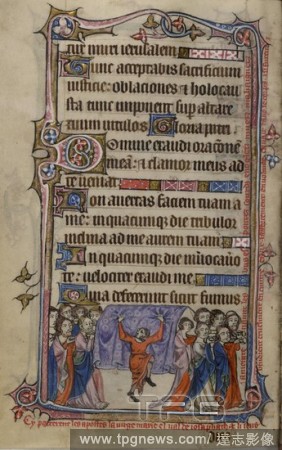 tur muri ierusalem
Tunc acceptabis sacrificium
iusticie: oblaciones & holocau
sta tunc imponent sup altare
tuum vitulos Gloria patri
Domine exaudi oracōnem
meā: & clamor meus ad
te veniat
Non avertas faciem tuam a
me: in quacumqꝫ die tribulor
inclina ad me aurem tuam
In quacumqꝫ die invocaue
ro te: velociter exaudi me
Quia defecerunt sicut fumus
Cy porterent les apostles
TPG
www.tpgnews.com / 達志影像